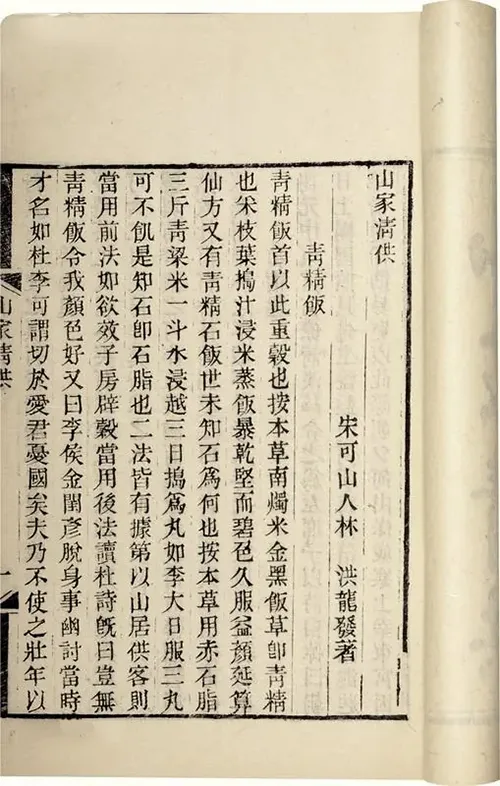 山家清供
宋可山人林 洪龍發著
靑精飯
靑精飯首以此重穀也按本草南燭米金黑飯草卽靑精
也釆枝葉搗汁浸米蒸飯暴乾堅而碧色久服益顏延算
仙方又有靑精石飯世未知石爲何也按本草用赤石脂
三斤靑梁米一斗水浸越三日搗爲丸如李大日服三丸
可不飢是知石卽石脂也二法皆有據第以山居供客則
當用前法如欲效子房辟穀當用後法讀杜詩旣曰豈無
靑精飯令我顏色好又曰李侯金閨彥脫身事幽討當時
才名如杜李可謂切於愛君憂國矣夫乃不使之壯年以
山家清供